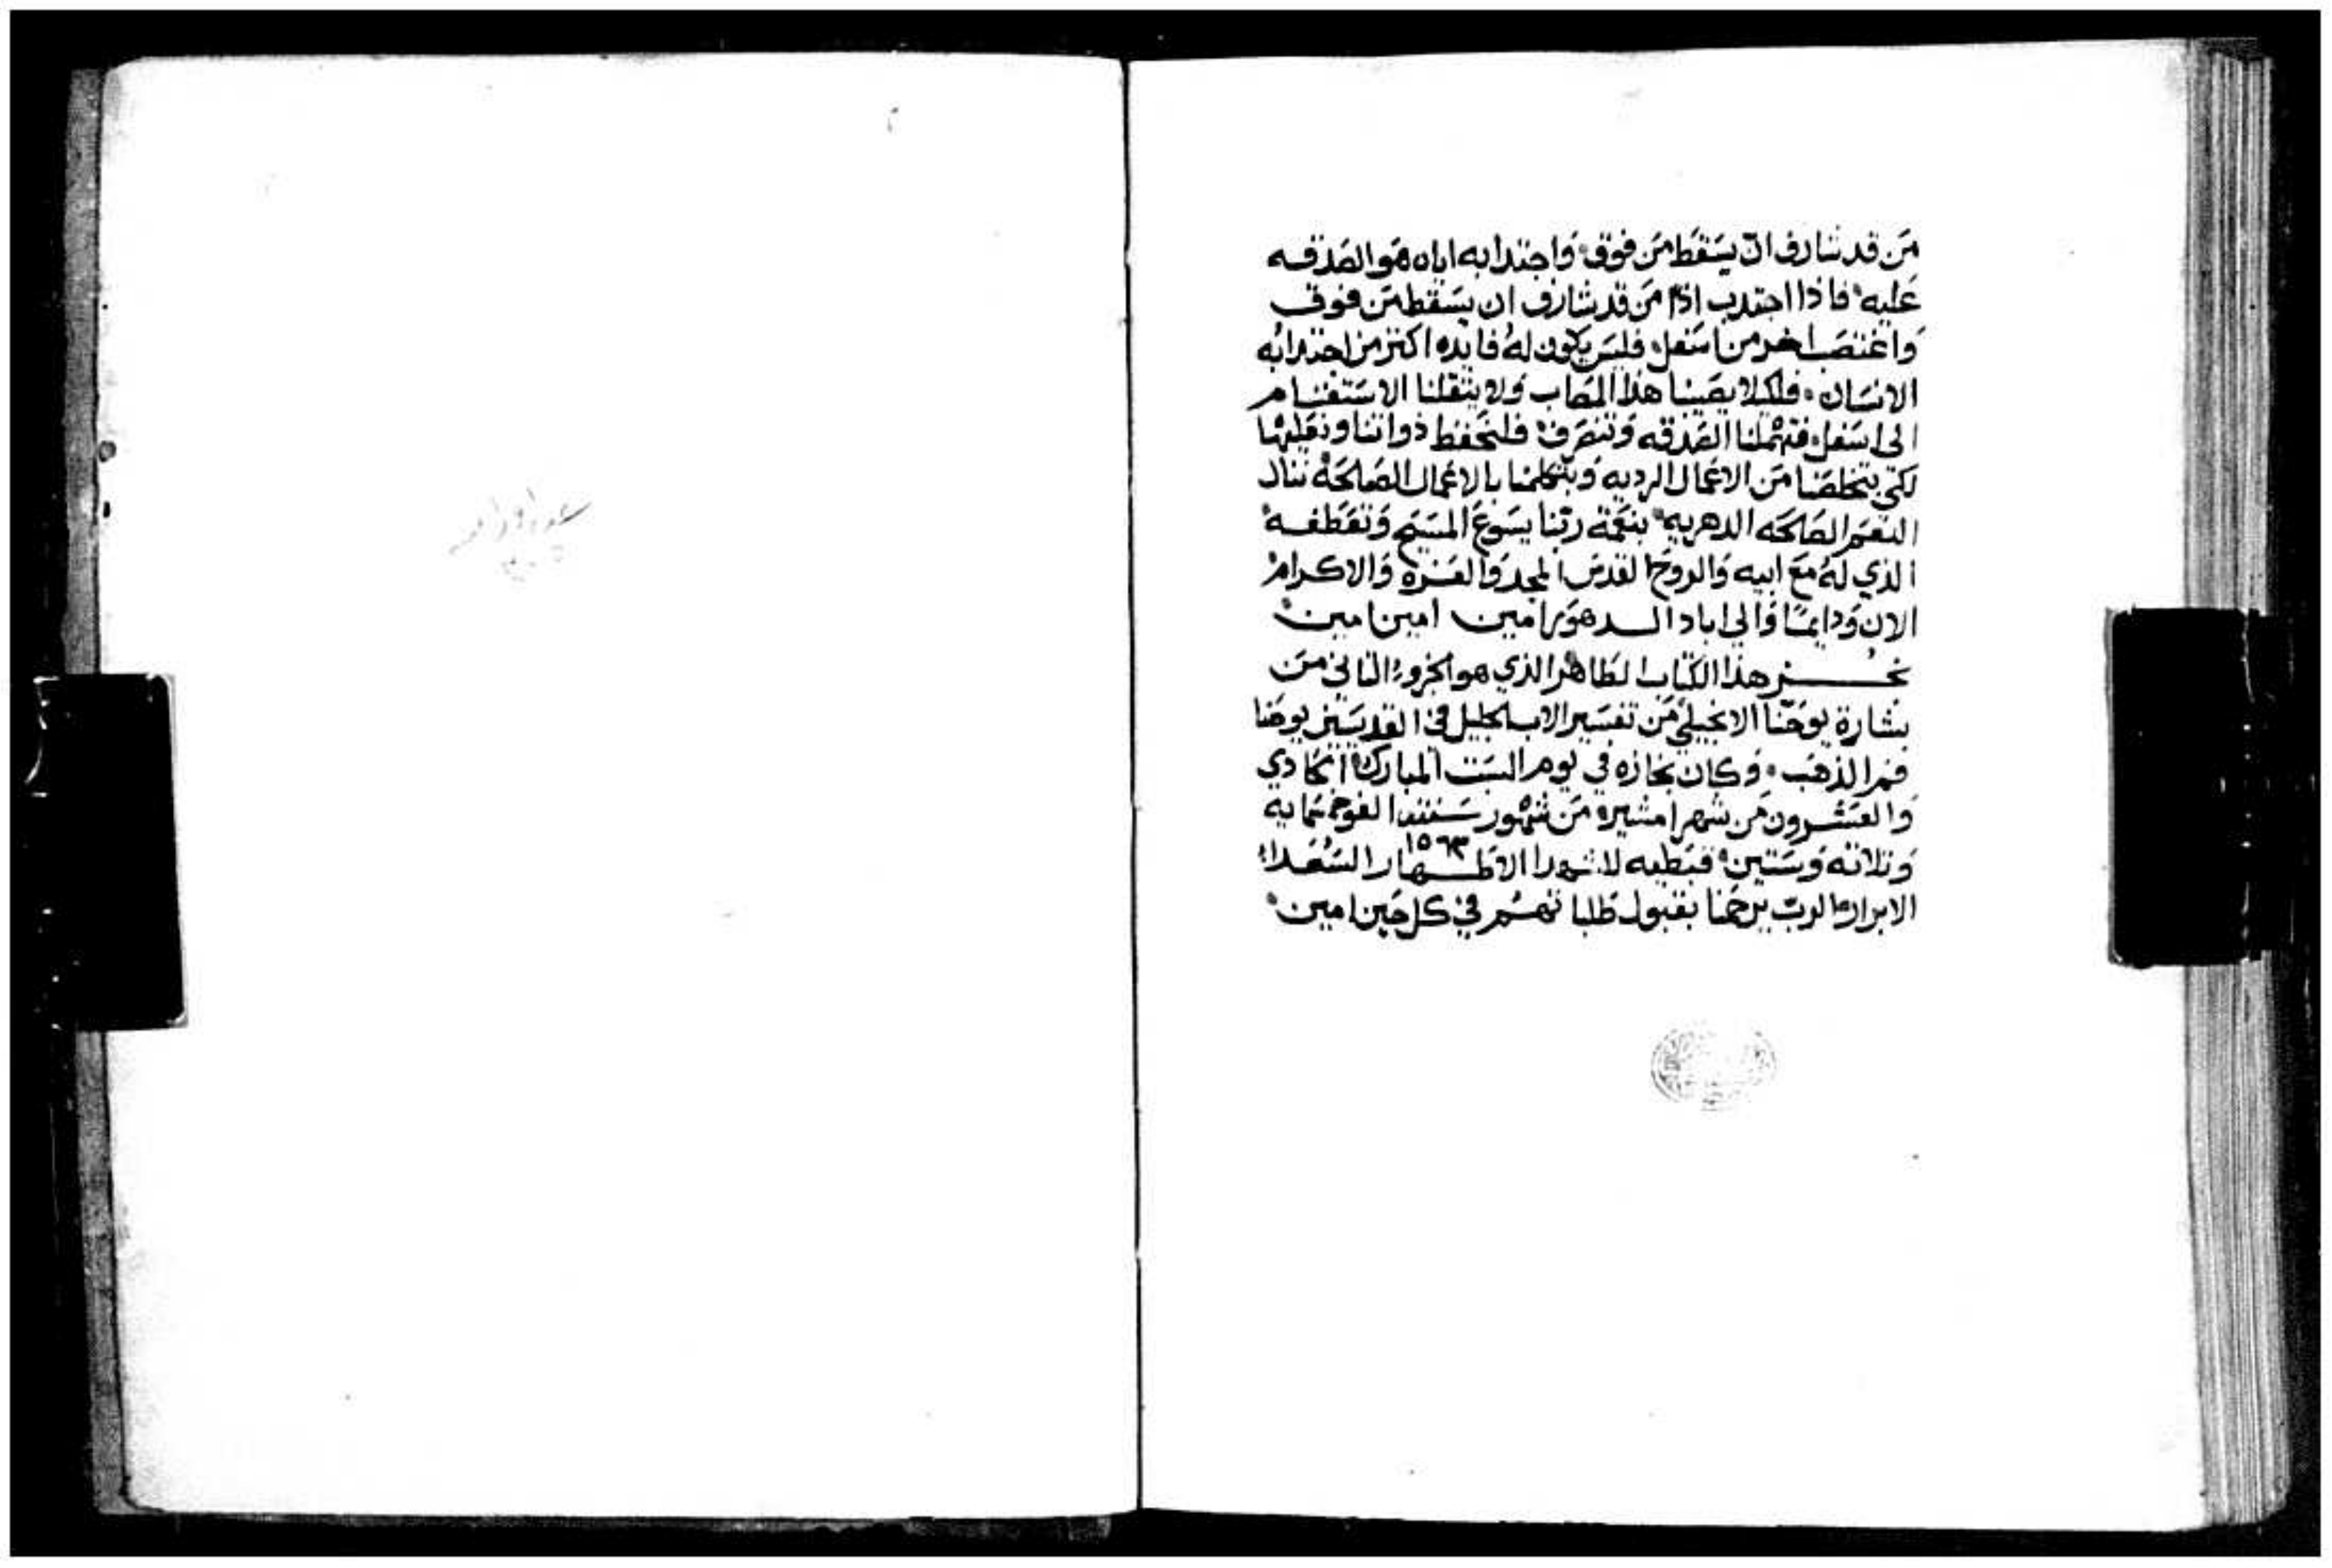 من قد شارف ان يسقط من فوق واجتدابه اياه هو الصدقه
عليه فاذا اجتدب اذًا من قد شارف ان يسقط من فوق
واغتصب اخر من اسفل فليس يكون له فايده اكثر من اجتدابه
الانسان فلكيلا يصيبنا هذا المصاب ولا يثقلنا الاستغنام
الى اسفل فتهملنا الصدقه وتنصرف فلنحفظ ذواتنا ونقلبها
لكي بتخلصنا من الاعمال الرديه وبتكلمنا بالاعمال الصالحة ننال
النعم الصالحه الدهريه بنعمة ربنا يسوع المسيح وتعطفه
الذي له مع ابيه والروح القدس المجد والعزه والاكرام
الان ودايمًا والى اباد الدهور امين امين امين
نجز هذا الكتاب الطاهر الذي هو الجزوء الثاني من
بشارة يوحنا الانجيلي من تفسير الاب الجليل في القديسين يوحنا
فم الذهب وكان نجازه في يوم السبت المبارك الحادي
والعشرون من شهر امشير من شهور سنة الف وخمسمايه
١٥٦٣
وثلاثه وستين قبطيه للشهدا الاطهار السعداء
الابرار الرب يرحمنا بقبول طلباتهم في كل حين امين